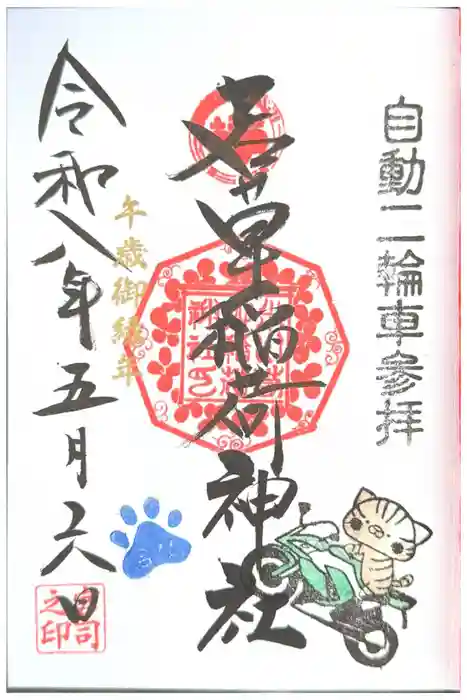 自動二輪車参拝
若草稲荷神社
午歳御縁年
令和八年五月六日
宮司之印